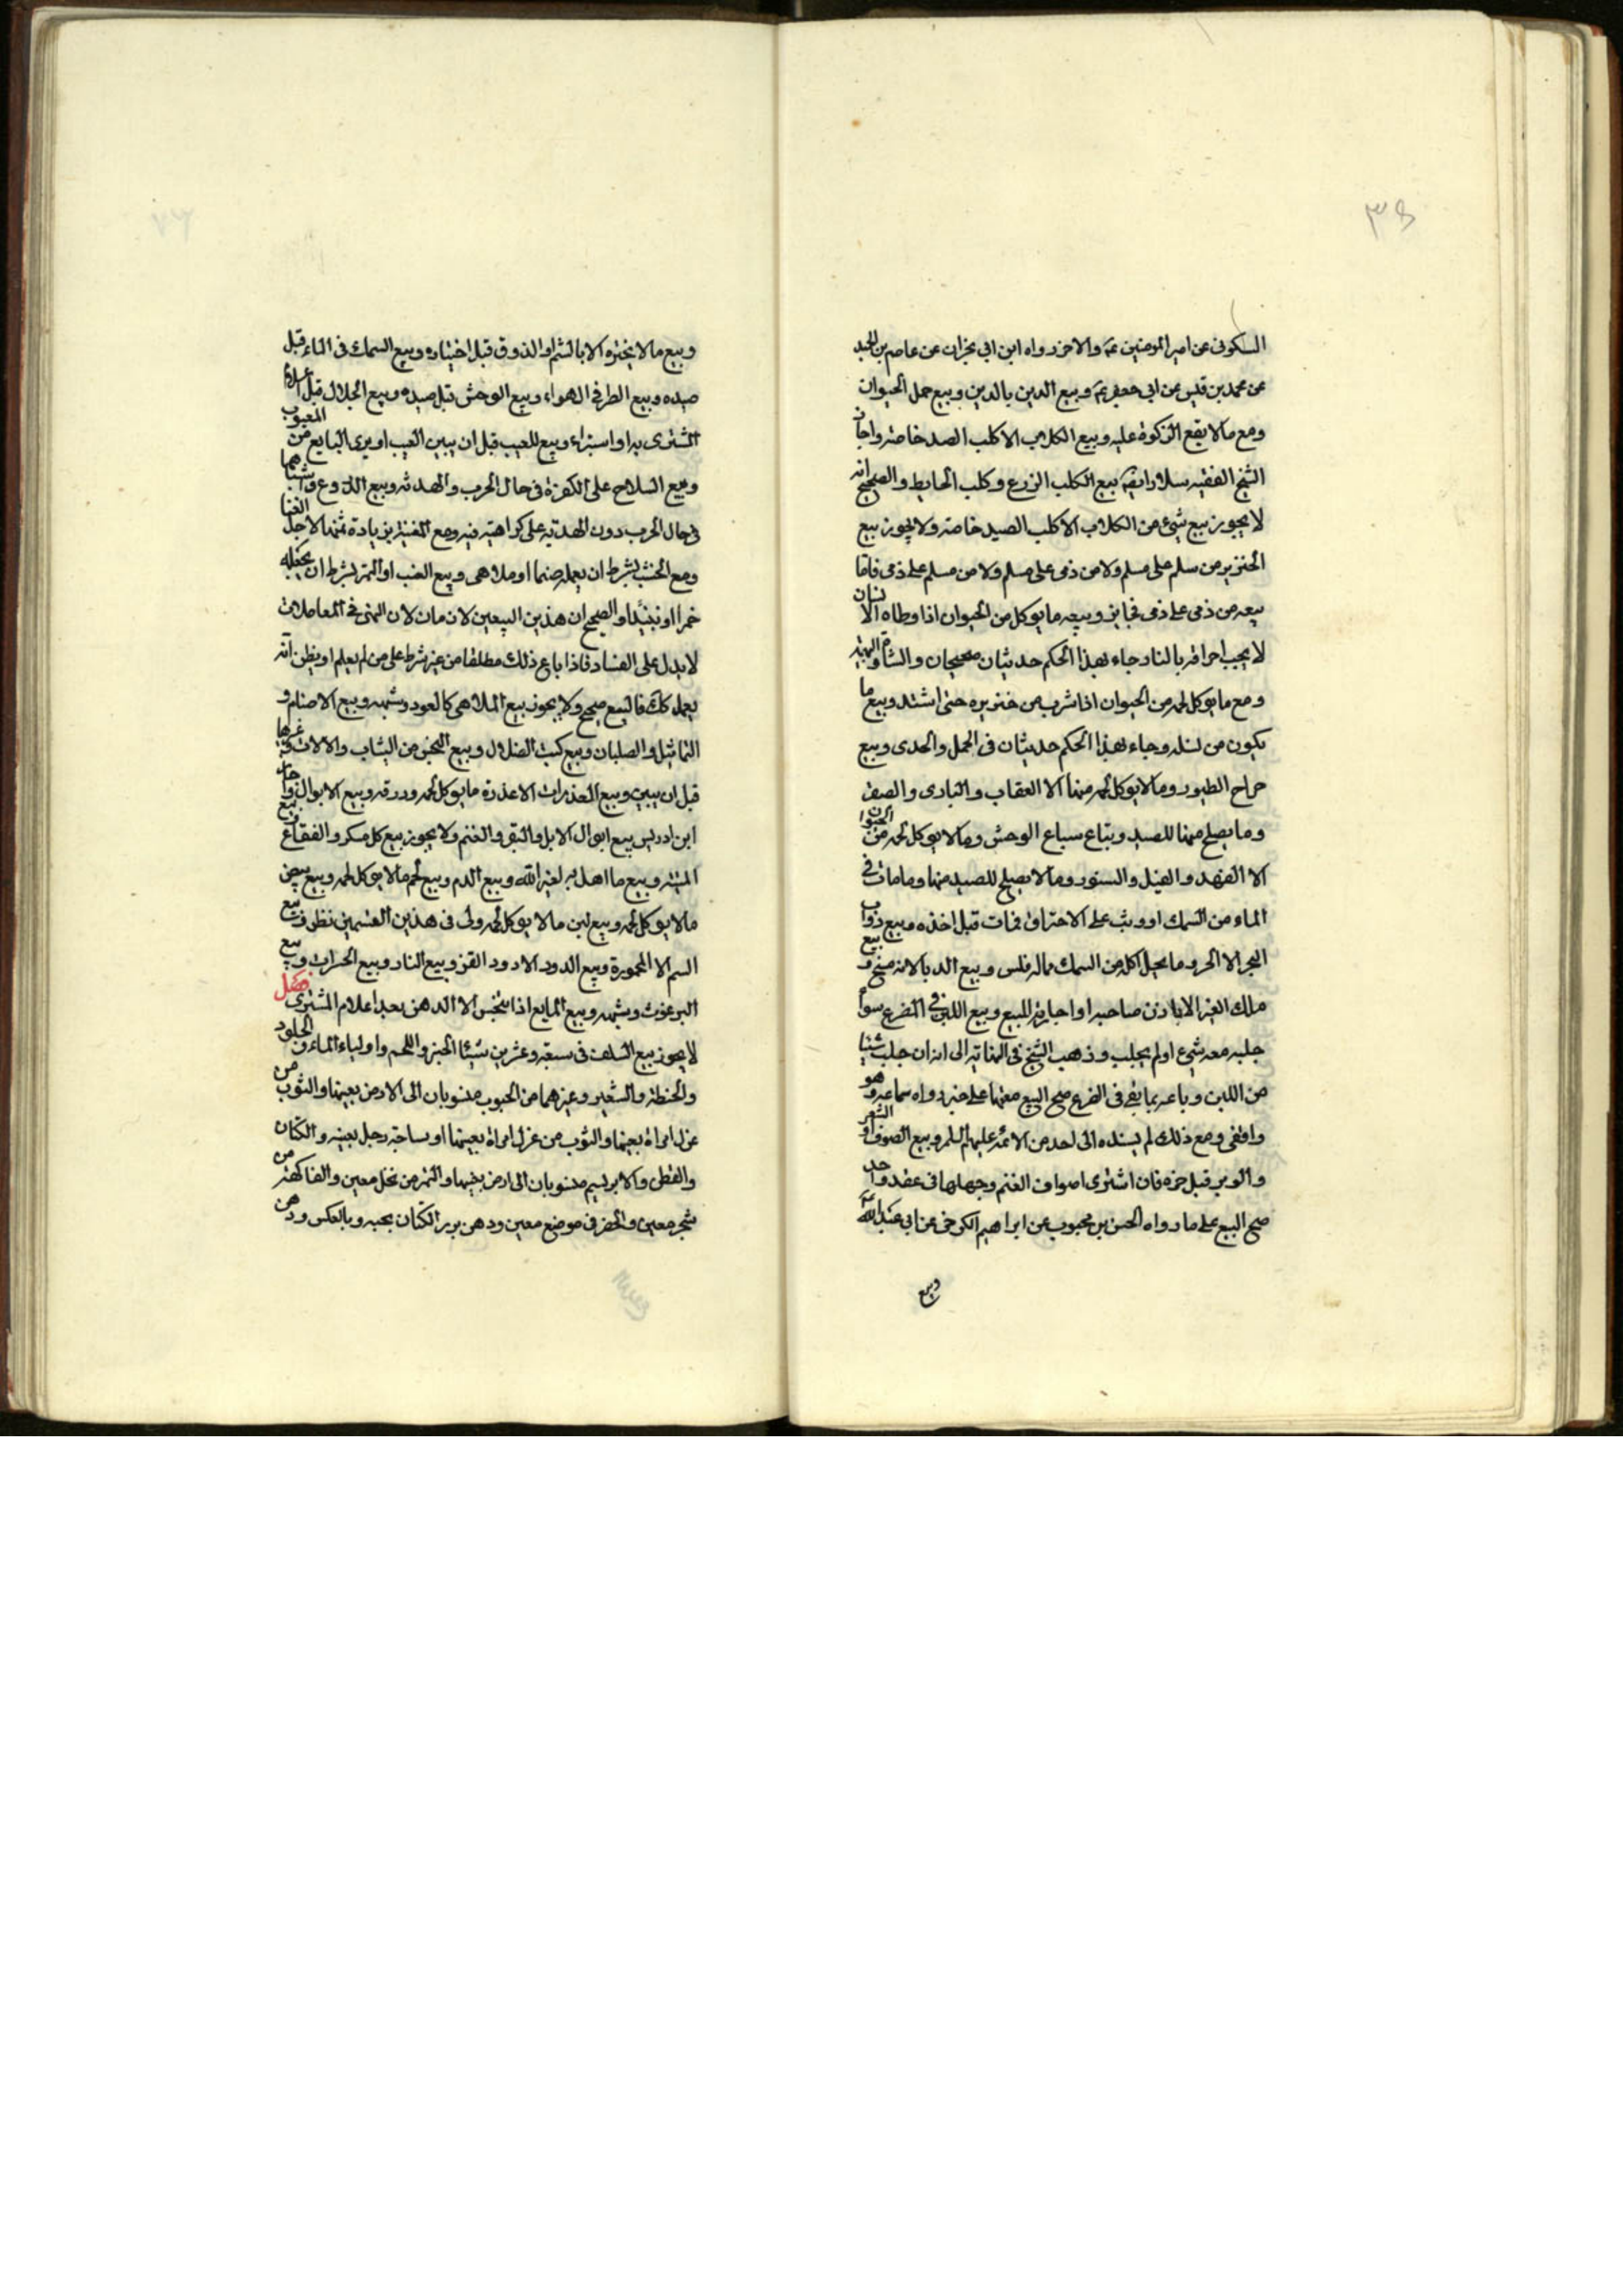 ٣٨
السكونى عن امير المومنين عم والاخر رواه ابن ابى نجران عن عاصم بن الحميد
عن محمد بن قيس عن ابى جعفر عم وبيع الدين بالدين وبيع حمل الحيوان
ومع مالا يقع الزكوة عليه وبيع الكلاب الا كلب الصيد خاصة واجاز
الشيخ الفقيه سلار ايضا بيع الكلب الزرع وكلب الحايط والصحيح انه
لا يجوز بيع شئ من الكلاب الا كلب الصيد خاصة ولا يجوز بيع
الخنزير من مسلم على مسلم ولا من ذمى على مسلم ولا من مسلم على ذمى فاما
بيعه من ذمى على ذمى فجايز وبيع ما يوكل من الحيوان اذا وطاه الانسان
لا يجب احراقه بالنار جاء بهذا الحكم حديثان صحيحان والشاة والبهيمة
ومع ما يوكل لحمه من الحيوان اذا شرب من خنزيره حتى اشتد وبيع ما
يكون من نسله وجاء بهذا الحكم حديثان فى الحمل والجدى وبيع
جراح الطيور وما لا يوكل لحمه منها الا العقاب والبازى والصقر
وما يصلح منها للصيد وبتاع سباع الوحش وما لا يوكل لحمه من الحيوان
الا الفهد والفيل والسنور وما لا يصلح للصيد منها وما مات فى
الماء من السمك او وثب على الاحتراق فمات قبل اخذه وبيع دواب
البحر الا الحر وما يحل اكله من السمك ماله فلس وبيع الدبا لانه مسخ وبيع
ملك الغير الا باذن صاحبه او اجازته للبيع وبيع اللبن فى الضرع سواء
جلبه معه شئ او لم يجلب وذهب الشيخ فى النهاية الى انه ان جلب شيئا
من اللبن وباعه بما بقى فى الضرع صح البيع معتمدا على خبر رواه سماعه وهو
واقفى ومع ذلك لم يسنده الى احد من الائمة عليهم السلم وبيع الصوف او الشعر
والوبر قبل جزه فان اشترى اصواف الغنم وحملها فى عقد واحد
صح البيع على ما رواه الحسن بن محبوب عن ابراهيم الكرخى عن ابى عبد الله عم
وبيع
وبيع ما لا يختبره الا بالشم او الذوق قبل اختباره وبيع السمك فى الماء قبل
صيده وبيع الطير فى الهواء وبيع الوحش قبل صيده وبيع الجلال قبل اعلام
المشترى به او استبراء وبيع المعيب قبل ان يبين العيب او يبرى البايع من المعيوب
وبيع السلاح على الكفرة فى حال الحرب والهدنه وبيع الدروع واشباهها
فى حال الحرب دون الهدنة على كراهية فيه ومع المغنية بزيادة ثمنها لاجل الغنا
ومع الخشب بشرط ان يعمله صنما او ملاهى وبيع العنب او التمر بشرط ان يجعله
خمرا او نبيذا والصحيح ان هذين البيعين لازمان لان النهى فى المعاملات
لا يدل على الفساد فاذا باع ذلك مطلقا من غير شرط على من لم يعلم او يظن انه
يعمله كذلك فالبيع صحيح ولا يجوز بيع الملاهى كالعود وشبهه وبيع الاصنام و
التماثيل والصلبان وبيع كتب الضلال وبيع النجس من الثياب والالات وغيرها
قبل ان يبين وبيع العذرات الا عذرة ما يوكل لحمه وذرقه وبيع الابوال واجاز
ابن ادريس بيع ابوال الابل والبقر والغنم ولا يجوز بيع كل مسكر والفقاع وبيع
الميتة وبيع ما اهل به لغير الله وبيع الدم وبيع لحم ما لا يوكل لحمه وبيع بيض
ما لا يوكل لحمه وبيع لبن ما لا يوكل لحمه ولى فى هذين القسمين نظر وبيع
السم الا المحمورة وبيع الدود الا دود القز وبيع النار وبيع الحشرات وبيع
البرغوث وشبهه وبيع المايع اذا نجس الا الدهن بعد اعلام المشترى فصل
لا يجوز بيع السلف فى سبعة وعشرين شيئا الخبز واللحم واولياء الماء والجلود
والحنطة والشعير وغيرهما من الحبوب منسوبان الى الارض بعينها والثوب من
غزل امراة بعينها والثوب من غزل امراة بعينها او نساجة رجل بعينه والكتان
والقطن والابريسم منسوبان الى ارض بعينها والتمر من نخل معين والفاكهة من
شجر معين والخضر فى موضع معين ودهن بزر الكتان بحبه وبالعكس ودهن